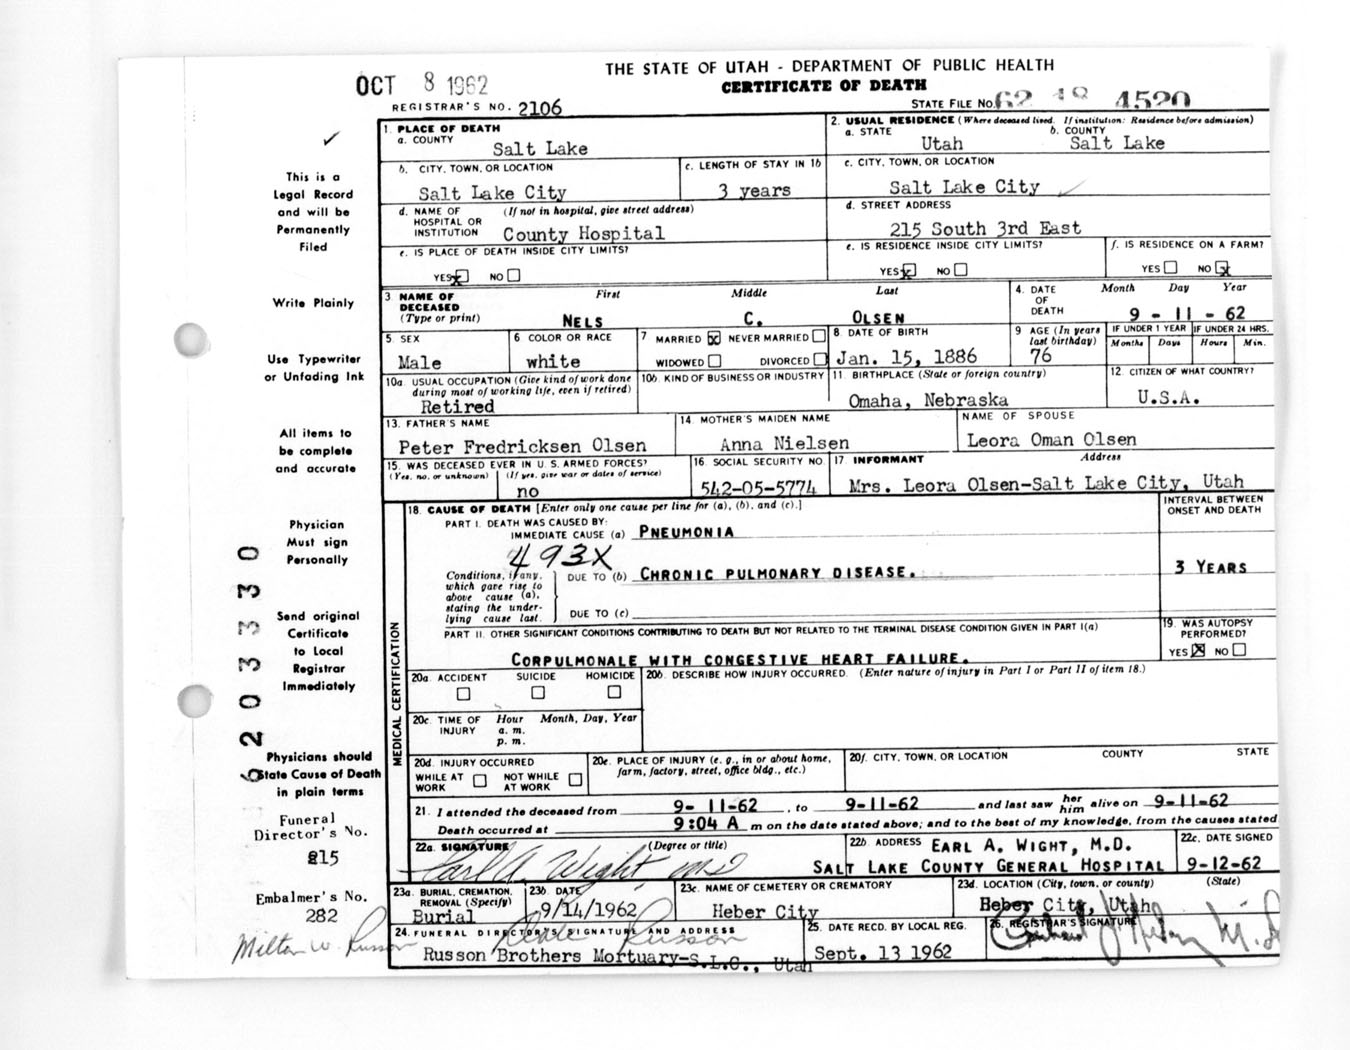 THE STATE OF UTAH - DEPARTMENT OF PUBLIC HEALTH
OCT 8 1962
CERTIFICATE OF DEATH
REGISTRAR'S NO. 2106
STATE FILE NO. 62 18 4520
This is a
Legal Record
and will be
Permanently
Filed
Write Plainly
Use Typewriter
or Unfading Ink
All items to
be complete
and accurate
Physician
Must sign
Personally
Send original
Certificate
to Local
Registrar
Immediately
Physicians should
State Cause of Death
in plain terms
Funeral
Director's No.
215
Embalmer's No.
282
Milton W. Russon
203330
1. PLACE OF DEATH
a. COUNTY
Salt Lake
2. USUAL RESIDENCE (Where deceased lived. If institution: Residence before admission)
a. STATE b. COUNTY
Utah Salt Lake
b. CITY, TOWN, OR LOCATION
Salt Lake City
c. LENGTH OF STAY IN 1b
3 years
c. CITY, TOWN, OR LOCATION
Salt Lake City
d. NAME OF HOSPITAL OR INSTITUTION (If not in hospital, give street address)
County Hospital
d. STREET ADDRESS
215 South 3rd East
e. IS PLACE OF DEATH INSIDE CITY LIMITS?
YES x NO
e. IS RESIDENCE INSIDE CITY LIMITS?
YES x NO
f. IS RESIDENCE ON A FARM?
YES NO x
3. NAME OF DECEASED (Type or print)
First Middle Last
NELS C. OLSEN
4. DATE OF DEATH
Month Day Year
9 - 11 - 62
5. SEX
Male
6 COLOR OR RACE
white
7 MARRIED x NEVER MARRIED
WIDOWED DIVORCED
8. DATE OF BIRTH
Jan. 15, 1886
9 AGE (In years last birthday)
76
IF UNDER 1 YEAR
Months Days
IF UNDER 24 HRS.
Hours Min.
10a. USUAL OCCUPATION (Give kind of work done during most of working life, even if retired)
Retired
10b. KIND OF BUSINESS OR INDUSTRY
11. BIRTHPLACE (State or foreign country)
Omaha, Nebraska
12. CITIZEN OF WHAT COUNTRY?
U.S.A.
13. FATHER'S NAME
Peter Fredricksen Olsen
14. MOTHER'S MAIDEN NAME
Anna Nielsen
NAME OF SPOUSE
Leora Oman Olsen
15. WAS DECEASED EVER IN U. S. ARMED FORCES?
(Yes, no, or unknown) (If yes, give war or dates of service)
no
16. SOCIAL SECURITY NO.
542-05-5774
17. INFORMANT Address
Mrs. Leora Olsen-Salt Lake City, Utah
MEDICAL CERTIFICATION
18. CAUSE OF DEATH [Enter only one cause per line for (a), (b), and (c).]
INTERVAL BETWEEN ONSET AND DEATH
PART I. DEATH WAS CAUSED BY:
IMMEDIATE CAUSE (a) PNEUMONIA
493X
Conditions, if any, which gave rise to above cause (a), stating the underlying cause last.
DUE TO (b) CHRONIC PULMONARY DISEASE. 3 YEARS
DUE TO (c)
PART II. OTHER SIGNIFICANT CONDITIONS CONTRIBUTING TO DEATH BUT NOT RELATED TO THE TERMINAL DISEASE CONDITION GIVEN IN PART I(a)
CORPULMONALE WITH CONGESTIVE HEART FAILURE.
19. WAS AUTOPSY PERFORMED?
YES x NO
20a. ACCIDENT SUICIDE HOMICIDE
20b. DESCRIBE HOW INJURY OCCURRED. (Enter nature of injury in Part I or Part II of item 18.)
20c. TIME OF INJURY Hour Month, Day, Year
a. m.
p. m.
20d. INJURY OCCURRED
WHILE AT WORK NOT WHILE AT WORK
20e. PLACE OF INJURY (e. g., in or about home, farm, factory, street, office bldg., etc.)
20f. CITY, TOWN, OR LOCATION COUNTY STATE
21. I attended the deceased from 9- 11-62, to 9-11-62 and last saw her him alive on 9-11-62
Death occurred at 9:04 A m on the date stated above; and to the best of my knowledge, from the causes stated
22a. SIGNATURE (Degree or title)
Earl A. Wight MD
22b. ADDRESS EARL A. WIGHT, M.D.
SALT LAKE COUNTY GENERAL HOSPITAL
22c. DATE SIGNED
9-12-62
23a. BURIAL, CREMATION, REMOVAL (Specify)
Burial
23b. DATE
9/14/1962
23c. NAME OF CEMETERY OR CREMATORY
Heber City
23d. LOCATION (City, town, or county) (State)
Heber City, Utah
24. FUNERAL DIRECTOR'S SIGNATURE AND ADDRESS
Russon
Russon Brothers Mortuary-S.L.C., Utah
25. DATE RECD. BY LOCAL REG.
Sept. 13 1962
26. REGISTRAR'S SIGNATURE